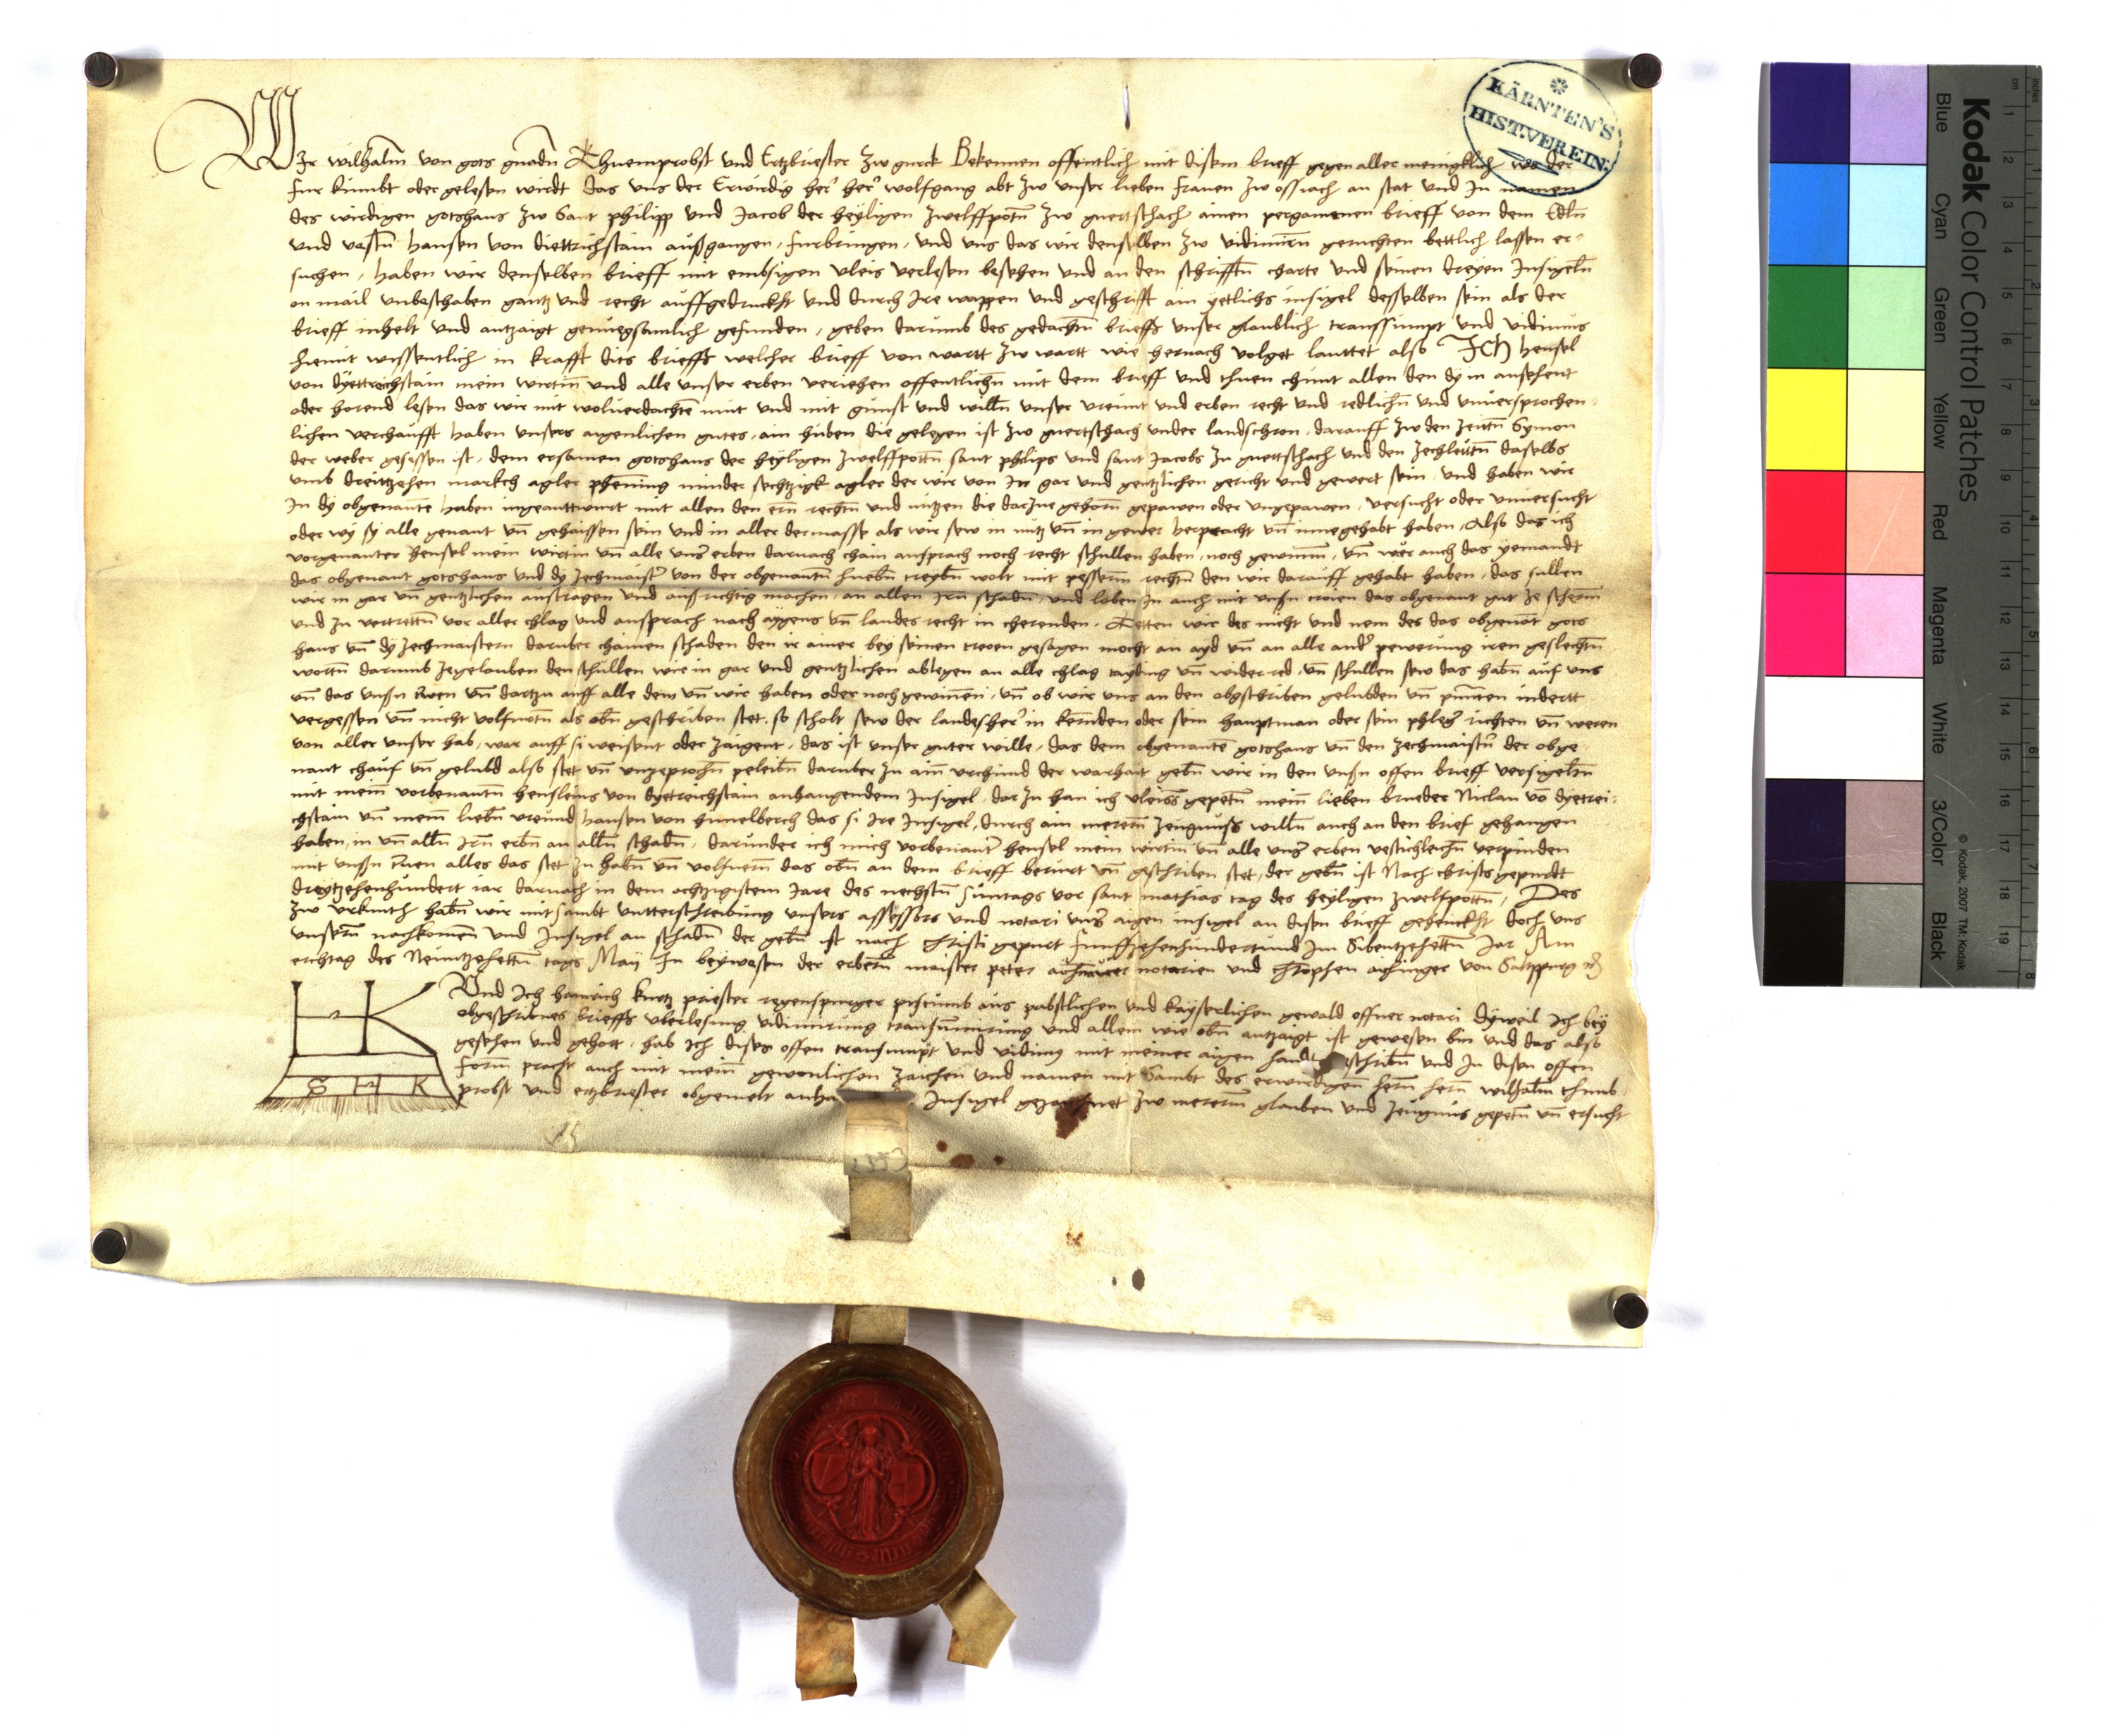 KÄRNTEN'S
HIST. VEREIN.
Wir wilhalm von gots gnadn Thuemprobst und Ertzbriester zw gurck Bekennen offentlich mit disem brieff gegen aller menigklich wo der
fur kumbt oder gelesen wirdt das uns der Erwirdig her her wolfgang abt zw unser lieben frawen zw ossiach an stat und In namen
des wirdigen gotshaus zw Sant philipp und Jacob der heyligen zwelffpotn zw guertschach ainen pergamenen brieff von dem Edln
und vestn hansen von diettrichstain außgangen, furbringen, und uns das wir denselben zw vidimirn geruchten bettlich lassen er-
suchen, haben wir denselben brieff mit embsigen vleis verlesen besehen und an den schrifftn charte und seinen dreyen Insigeln
on mail unbeschaben gantz und recht auffgedruckht und durch Ire wappen und geschrifft ain yetlichs insigel desselben sein als der
brieff inhelt und antzaigt genuegsamlich gefunden, geben darumb des gedachtn brieffs unser glaublich transsumpt und vidimus
hiemit wissentlich in krafft dits brieffs welcher brieff von wartt zw wartt wie hernach volget lauttet also Ich hensel
von dyettrichstain mein wirtin und alle unser erben veriehen offentlichn mit dem brieff und thuen chunt allen den dy in ansehent
oder horend lesen das wir mit wolverdachtem mut und mit gunst und willn unser vreunt und erben recht und redlichn und unversprochen-
lichen verchaufft haben unsers aigenlichen gutes, ain huben die gelegen ist zw guertschach under landschron, darauff zw den zeittn Symon
der weber gesessen ist, dem ersamen gotshaus der heyligen zwelffpottn sant philips und sant Jacobs zu guertschach und den zechleuttn daselbs
umb dreittzehen markch agler phening minder sechtzigk agler der wir von In gar und gentzlichen gericht und gewert sein, und haben wir
In dy obgenante huben ingeanttwurt mit allen den ern rechtn und nutzen die darzue gehorn gepawen oder ungepawen, versucht oder unversucht
oder wy sy alle genant un gehaissen sein und in aller dermasse als wir sew in nutz un in gewer herpracht un innegehabt haben, Also das ich
vorgenanter hensel mein wirtin un alle unser erben darnach chain ansprach noch recht schullen haben, noch gewinnen, un wer auch das yemandt
das obgenant gotshaus und dy zechmaister von der obgenantn huebn treybn wolt mit pesserm rechtn den wir darauff gehabt haben, das sullen
wir in gar un gentzlichen austragen und außrichtig machen, an allen Irn schadn, und loben In auch mit unsn trewen das obgenant gut ze scherm
und zu vertrettn vor aller chlag und ansprach nach aygens un landes recht in cherenden. Tetten wir des nicht und nem des das obgenat gots
haus un dy zechmaistern daruber chainen schaden den ir ainer bey seinen trewen gesagen mocht an ayd un an alle ander pewerung iren geslechtn
worttn darumb zegelauben den schullen wir in gar und gentzlichen ablegen an alle chlag tayding un widerred, un schullen sew das habn auf uns
un das unsn trewen un dartzu auff alle dew un wir haben oder noch gewinnen, un ob wir uns an den obgschriben gelubden un punten indertt
vergessen un nicht volfurtn als obn geschriben stet, so scholt sew der landesher in kernden oder sein hauptman oder sein phleger richten un weren
von aller unser hab, war auff si weisent oder zaigent, das ist unser guter wille, das dem obgenante gotshaus un den zechmaistern der obge
nant chauf un gelubd also stet un unzeprochn peleibn daruber zu aim urchund der warhait gebn wir in den unsn offen brieff versigeltn
mit meim vorbenantn hensleins von dyetreichstain anhangendem Insigel, dar zu han ich vleiss gepetn meim lieben brueder Niclau vo dyetrei-
chstain un meim liebn vreund hansen von himelberch das si Ire Insigel, durch ain merern zeugnuss willn auch an den brief gehangen
haben, in un alln Irn erbn an alln schadn, darunder ich mich vorbenanter hensel mein wirtin un alle unser erben vestichleichn verpinden
mit unsn trwen alles das stet zu habn un volfuern das obn an dem brieff berurt un geschriben stet, der gebn ist Nach christs gepurdt
dreytzehenhundert iar darnach in dem achtzigistem Jare des nechstn suntags vor sant mathias tag des heyligen zwelfpottn, Des
zw urkunth habn wir mit sambt untterschreibung unsers assessors und notari unser aigen insigel an disen brieff gehenckht doch uns
unsern nachkomen und Insigel an schadn der gebn ist nach Christi gepurt funffzehenhundert und Im Sibentzehettn Jar Am
erichtag des Neuntzehettn tags May In beywesen der erbern maister peter notarien und Cristophen aichinger von Saltzpurg
Und Ich hainrich kurtz priester regenspurger pistumb aus pabstlichen und kayserlichen gewald offner notari dyweil Ich bey
obgeschribnes brieffs uberlesung vidimirung transumirung und allem wie obn antzaigt ist gewesen bin und das also
gesehen und gehort, hab Ich dises offen transumpt und vidimus mit meiner aigen handt schribn und In disen offen
form pracht auch mit meim gewonlichen zaichen und namen mit Sambt des erwirdigen hern hern wilhalm thumb
probst und ertzbriester obgemelt anha Insigel gezaichnet zw merern glauben und zeugnus gepetn un ersucht
H K
S H K
Kodak Color Control Patches
Blue Cyan Green Yellow Red Magenta White 3/Color Black
© Kodak, 2007 TM: Kodak